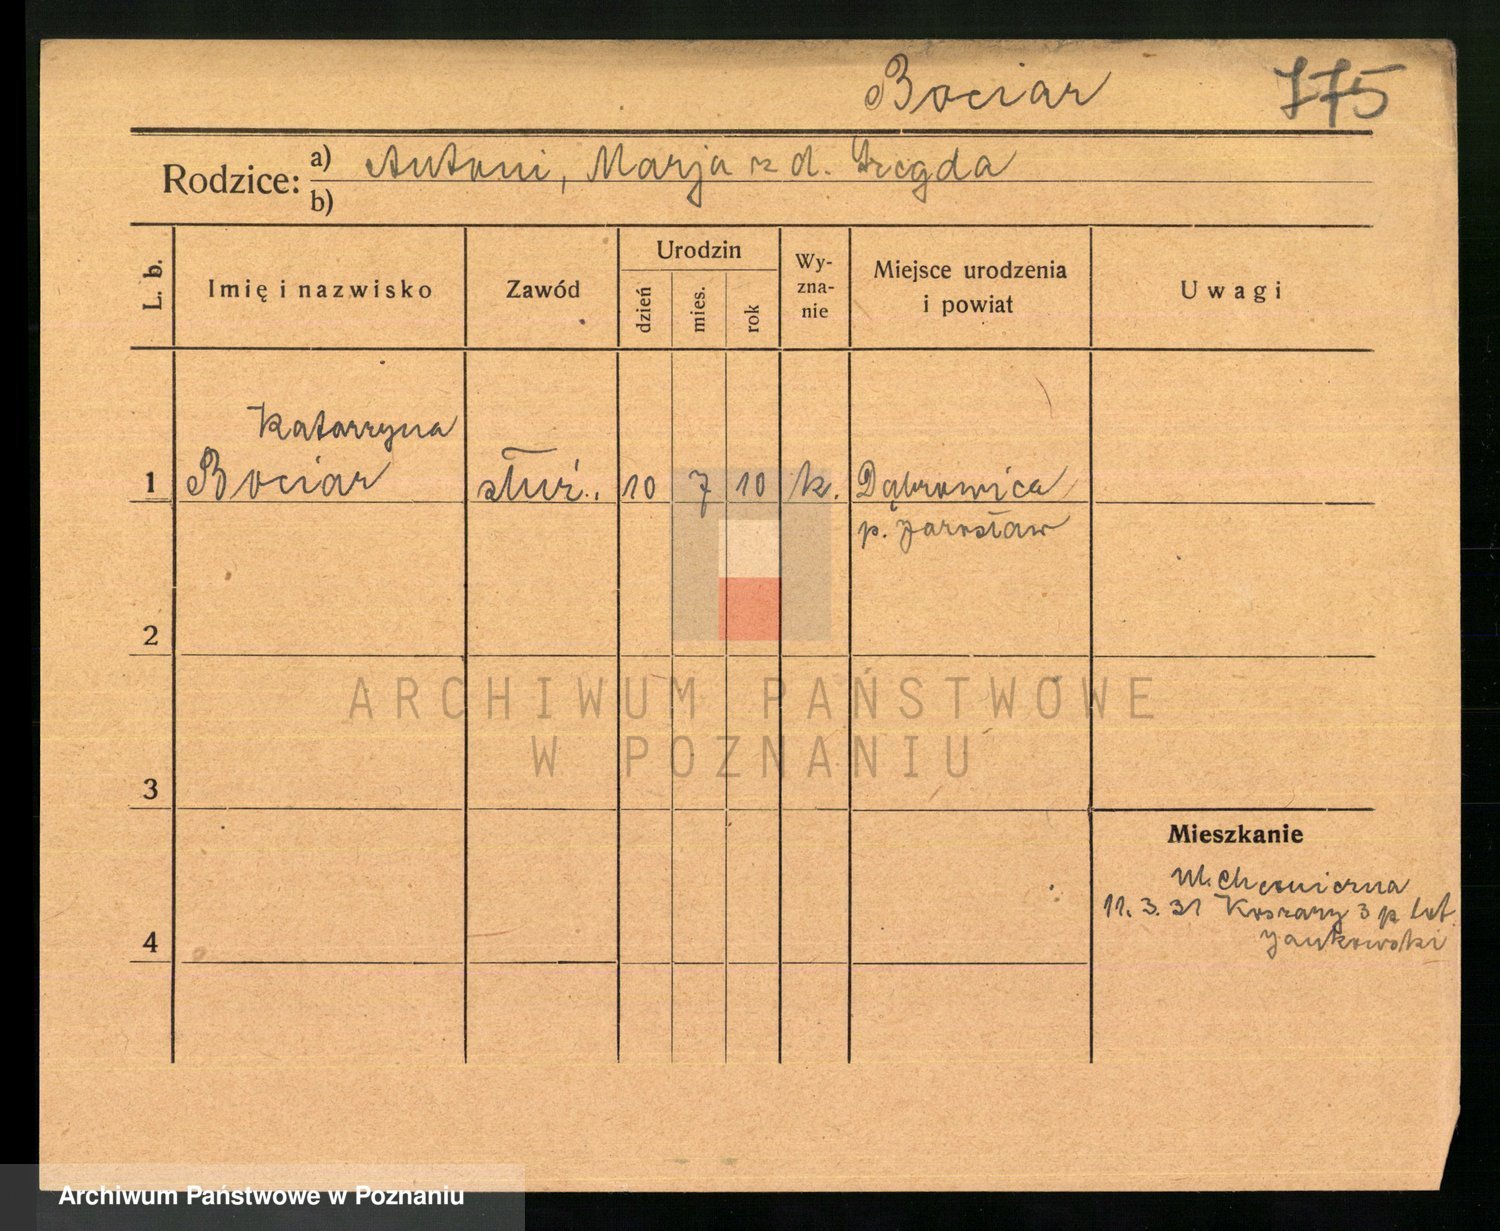 Bociar 775
Rodzice: a) Antoni, Marja z d.
b)
L. b. Imię i nazwisko Zawód Urodzin dzień mies. rok Wy-zna-nie Miejsce urodzenia i powiat Uwagi
Katarzyna
1 Bociar służ. 10 7 10 k. Dąbrowica
p. Jarosław
2
ARCHIWUM PAŃSTWOWE
W POZNANIU
3
Mieszkanie
11. 3. 31 Koszary 3 p. lot.
Jankowski
4
Archiwum Państwowe w Poznaniu